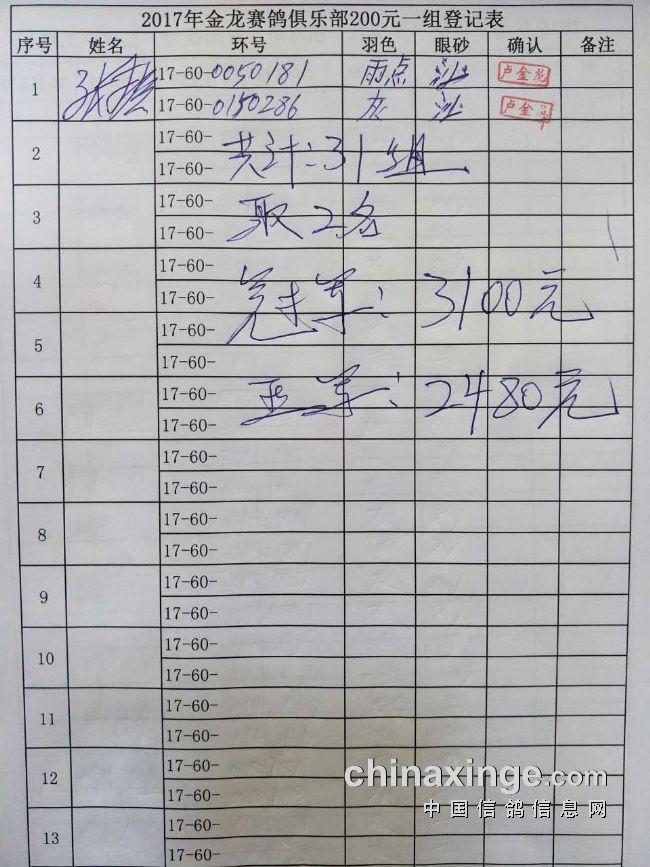 2017年金龙赛鸽俱乐部200元一组登记表
序号 姓名 环号 羽色 眼砂 确认 备注
1 17-60-0050181 雨点 沙 卢金龙
17-60-0150286 灰 沙 卢金
2 17-60- 共计:31组
17-60-
3 17-60- 取2名
17-60-
4 17-60-
17-60- 冠军: 3100元
5 17-60-
17-60-
6 17-60- 亚军: 2480元
17-60-
7 17-60-
17-60-
8 17-60-
17-60-
9 17-60-
17-60-
10 17-60-
17-60-
11 17-60-
17-60-
12 17-60-
17-60-
13 17-60-
17-60-
chinaxinge.com
中国信鸽信息网